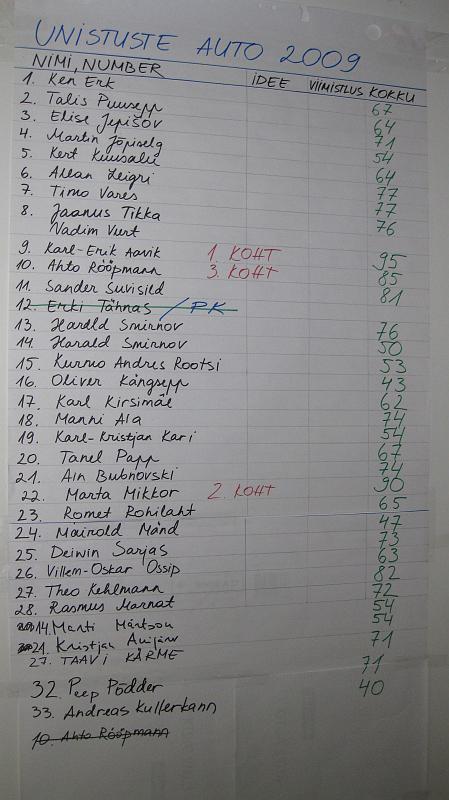 UNISTUSTE AUTO 2009
NIMI, NUMBER IDEE VIIMISTLUS KOKKU
1. Ken Erk 67
2. Talis Puusepp 64
3. Elise Jepišov 71
4. Martin 54
5. Kert Kuusalu 64
6. Allan Leigri 77
7. Timo Vares 77
8. Jaanus Tikka 76
Nadim Vurt
9. Karl-Erik Aavik 1. KOHT 95
10. Ahto Rööpmann 3. KOHT 85
11. Sander Suvisild 81
12. Erki Tähnas / PK
13. Harald Smirnov 76
14. Harald Smirnov 50
15. Kurmo Andres Rootsi 53
16. Oliver Kängsepp 43
17. Karl Kirsimäe 62
18. Manni Ala 74
19. Karl-Kristjan Kari 54
20. Tanel Papp 67
21. Ain Bubnovski 74
22. Marta Mikkor 2. KOHT 90
23. Romet Rohilaht 65
24. Mairold Mänd 47
25. Deiwin Sarjas 73
26. Villem-Oskar Ossip 63
27. Theo Kehlmann 82
28. Rasmus Marnat 72
14. Marti Märtson 54
21. Kristjan 54
27. TAAVI KÄRME 71
32. Peep Põdder 71
33. Andreas Kullerkann 40
10. Ahto Rööpmann